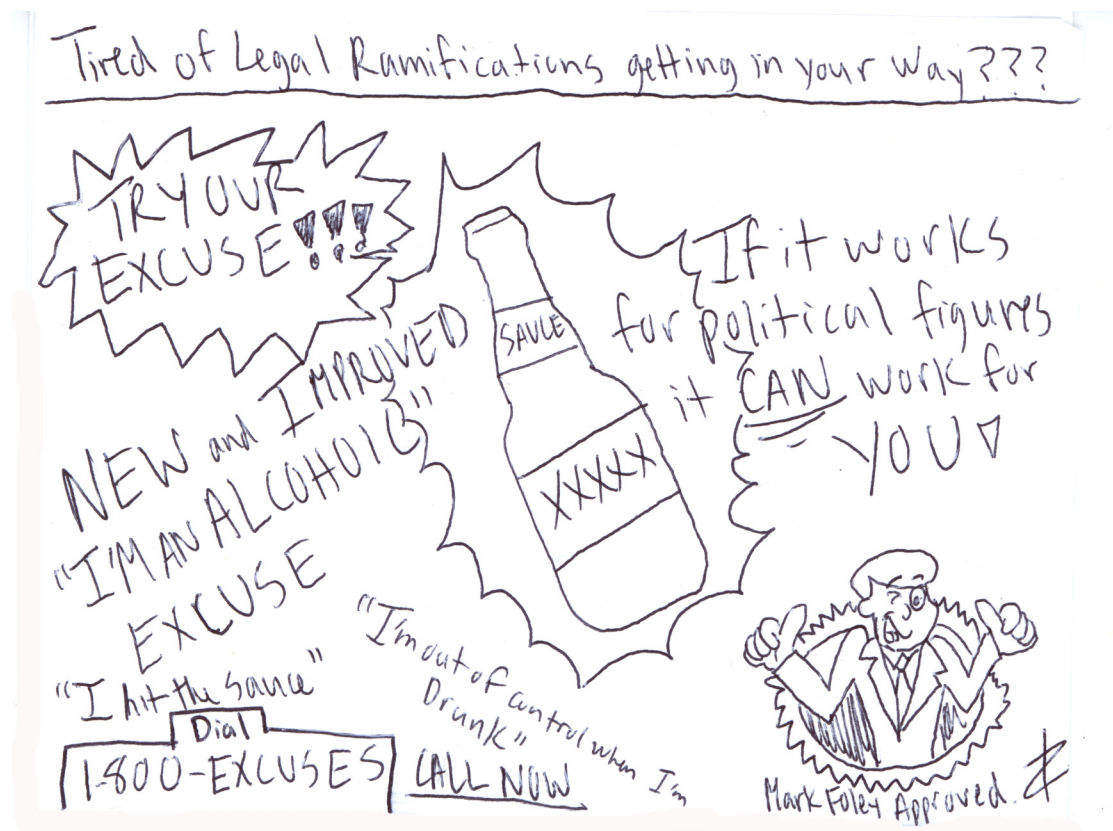 Tired of Legal Ramifications getting in your way???
TRY OUR
EXCUSE!!!
NEW and IMPROVED
"I'M AN ALCOHOLIC"
EXCUSE
SAUCE
XXXXX
If it works
for political figures
it CAN work for
YOU!
"I hit the sauce"
"I'm out of control when I'm
Drunk"
Dial
1-800-EXCUSES
CALL NOW
Mark Foley Approved.